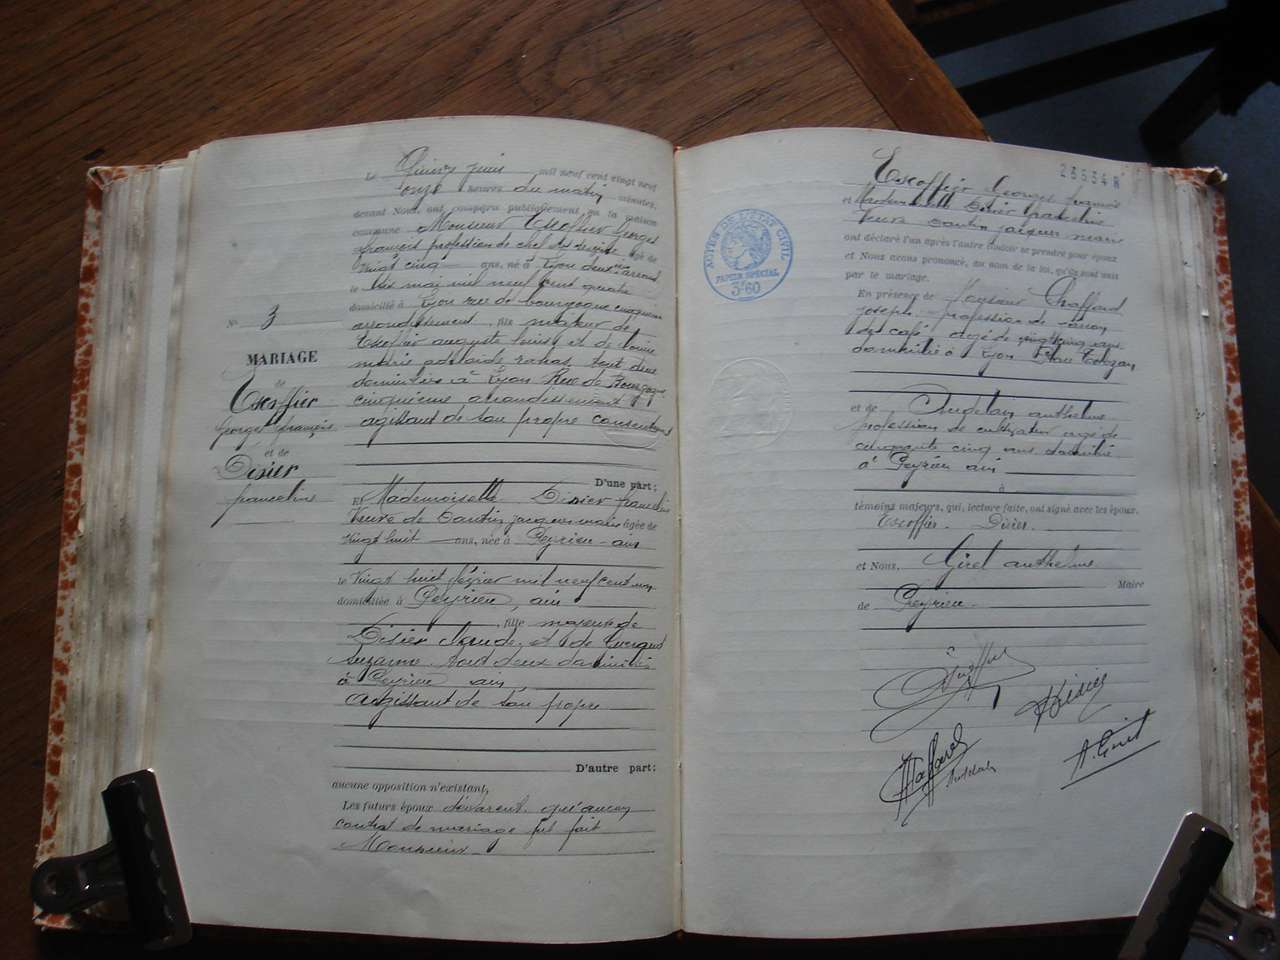 N° 3
MARIAGE
de
Escoffier
georges françois
et de
Disier
franceline
Le Quinze juin mil neuf cent vingt neuf
onze heures du matin minutes,
devant Nous, ont comparu publiquement en la maison
commune Monsieur Escoffier Georges
françois profession de chef de âgé de
vingt cinq ans, né à Lyon deuxième arrond
le six mai mil neuf cent quatre
domicilié à Lyon rue de bourgogne cinquième
arrondissement, fils majeur de
Escoffier auguste louis et de
marie adelaide tout deux
domiciliés à Lyon Rue de Bourgogne
cinquième arrondissement
agissant de son propre consentement
D'une part;
Et Mademoiselle Disier franceline
Veuve de jacques marie âgée de
vingt huit ans, née à Peyrieu - ain
le vingt huit février mil neuf cent un
domiciliée à Peyrieu, ain
, fille majeure de
Disier Claude, et de
Suzanne. tout deux domiciliés
à Peyrieu ain
agissant de son propre
D'autre part;
aucune opposition n'existant,
Les futurs époux déclarent qu'aucun
contrat de mariage fut fait
Monsieur
23534 R
ACTES DE L'ÉTAT CIVIL
PAPIER SPÉCIAL
3f60
Escoffier Georges françois
et Mademoiselle Disier franceline
Veuve jacques marie
ont déclaré l'un après l'autre vouloir se prendre pour époux
et Nous avons prononcé, au nom de la loi, qu'ils sont unis
par le mariage.
En présence de Monsieur Chaffard
joseph profession de garçon
de café âgé de vingt cinq ans
domicilié à Lyon
et de Andelain anthelme
profession de cultivateur âgé de
cinquante cinq ans domicilié
à Peyrieu ain
à
témoins majeurs, qui, lecture faite, ont signé avec les époux.
Escoffier. Disier.
et Nous, Girel anthelme
Maire
de Peyrieu.
Escoffier
Disier
Chaffard
A. Girel